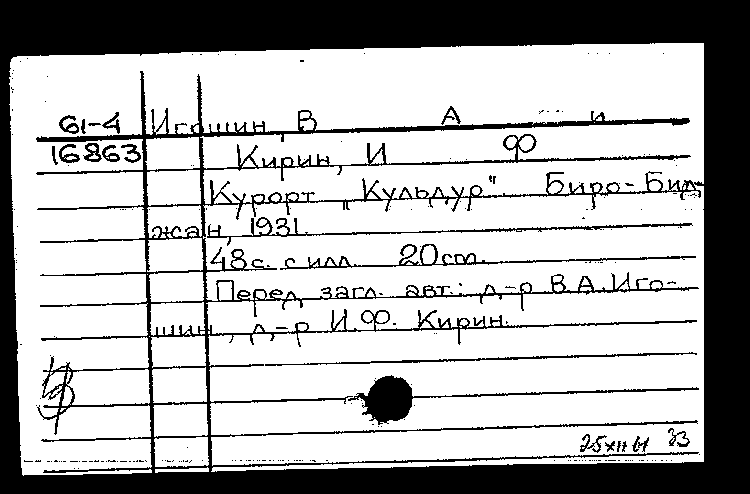 61-4 Игошин, В А и
16863 Кирин, И Ф
Курорт „Кульдур" Биро-Бид-
жан, 1931.
48с. с илл. 20см.
Перед загл. авт.: д-р В.А.Иго-
шин, д-р И.Ф. Кирин.